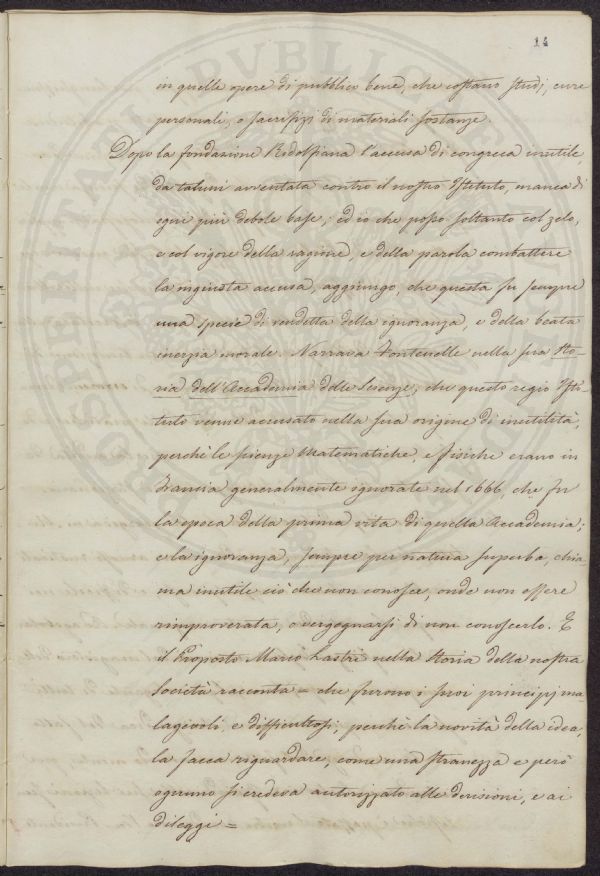 14
in quelle opere di pubblico bene, che costano studi, cure
personali, o sacrifizi di materiali sostanze.
Dopo la fondazione Ridolfiana l'accusa di congrega inutile,
da taluni avventata contro il nostro Istituto, manca di
ogni più debole base; ed io che posso soltanto col zelo,
e col vigore della ragione, e della parola combattere
la ingiusta accusa, aggiungo, che questa fu sempre
una specie di vendetta della ignoranza, e della beata
inerzia morale. Narrava Fontenelle nella sua Sto-
ria dell'Accademia delle Scienze, che questo regio Isti-
tuto venne accusato nella sua origine di inutilità,
perchè le scienze Matematiche, e fisiche erano in
Francia generalmente ignorate nel 1666, che fu
la epoca della prima vita di quella Accademia;
e la ignoranza, sempre per natura superba, chia
ma inutile ciò che non conosce, onde non essere
rimproverata, o vergognarsi di non conoscerlo. E
il Proposto Marco Lastri nella Storia della nostra
Società racconta = che furono i suoi principj ma-
lagevoli, e difficultosi; perchè la novità della idea,
la facea riguardare, come una stranezza e però
ognuno si credeva autorizzato alle derisioni, e ai
dileggi =
PROSPERITATI PVBLICAE